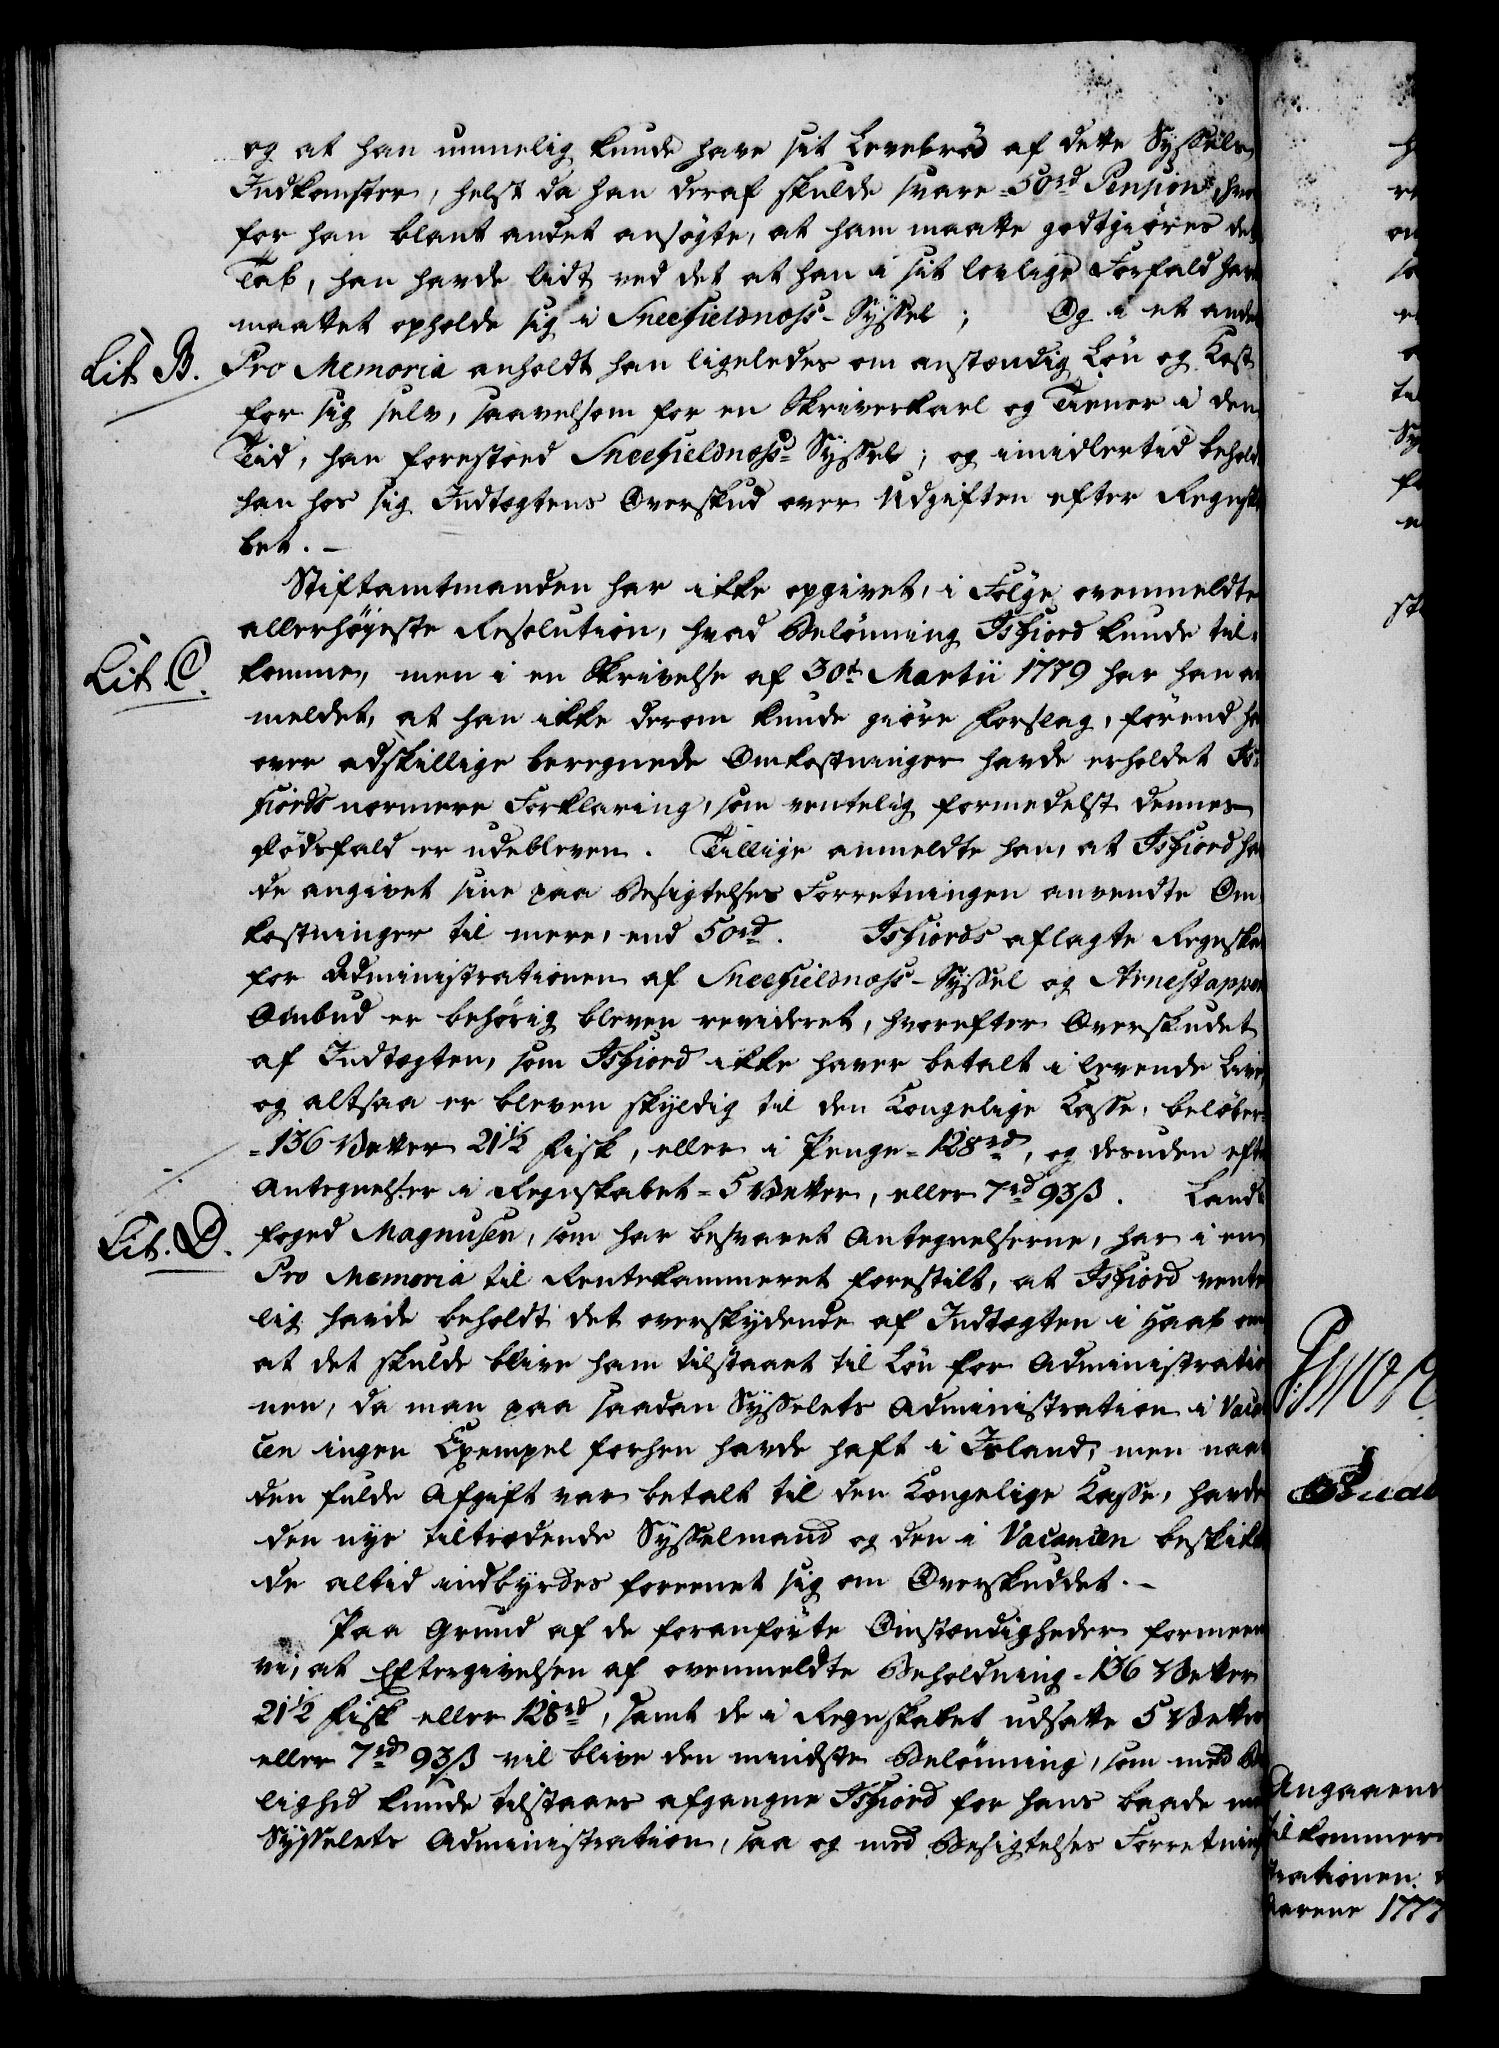 og at han ummelig kunde have sit Levebrød af dette Syssels
Indkomster, helst da han deraf skulde svare 50rd Pension, hvor
for han blant andet ansøgte, at ham maatte godtgiøres det
Tab, han havde lidt ved det at han i sit lovlige Forfald have
maattet opholde sig i Sneefieldnæss-Syssel; Og i et andet
Lit. B. Pro Memoria anholdt han ligeledes om anstændig Løn og Kost
for sig selv, saavelsom for en Skriverkarl og Tiener i den
Tid, han forestoed Sneefieldnæss-Syssel; og imidlertid behold
han hos sig Indtægtens Overskud over Udgiften efter Regnska
bet. -
Stiftamtmanden har ikke opgivet, i Følge ovenmeldte
allerhøjeste Resolution, hvad Belønning Isfiord kunde til-
Lit. C. komme, men i en Skrivelse af 30t Martii 1779 har han an
meldet, at han ikke derom kunde giøre Forslag, førend ha
over adskillige beregnede Omkostninger havde erholdet Is-
fiords nærmere Forklaring, som ventelig formedelst dennes
Dødsfald er udebleven. Tillige anmeldte han, at Isfiord ha
de angivet sine paa Besigtelses Forretningen anvendte Om-
kostninger til mere, end 50rd. Isfiords aflagte Regnskab
for Administrationen af Sneefieldnæss-Syssel og Arnestappen
Ombud er behørig bleven revideret, hvorefter Overskudet
af Indtægten, som Isfiord ikke haver betalt i levende Live,
og altsaa er bleven skyldig til den Kongelige Kasse, beløber
136 Vætter 21½ Fisk, eller i Penge 128rd, og desuden efter
Antegnelser i Regnskabet 5 Vætter, eller 7rd 93ß. Land-
Lit. D. foged Magnusen, som har besvaret Antegnelserne, har i en
Pro Memoria til Rentekammeret forestilt, at Isfiord vente
lig havde beholdt det overskydende af Indtægten i Haab om
at det skulde blive ham tilstaaet til Løn for Administratio
nen, da man paa saadan Sysselets Administration i Vacan
cen ingen Exempel forhen havde haft i Island; men naar
den fulde Afgift var betalt til den Kongelige Kasse, havde
den nye tiltrædende Sysselmand og den i Vacancen beskikke
de altid indbyrdes foreenet sig om Overskuddet. -
Paa Grund af de foranførte Omstændigheder formeene
vi, at Eftergivelsen af ovenmeldte Beholdning 136 Vætter
21½ Fisk eller 128rd, samt de i Regnskabet udsatte 5 Vætter
eller 7rd 93ß vil blive den mindste Belønning, som med Bi
lighed kunde tilstaaes afgangne Isfiord for hans baade med
Sysselets Administration, saa og med Besigtelses Forretning
Angaaend
tilkommer
trationen
Aarene 1777